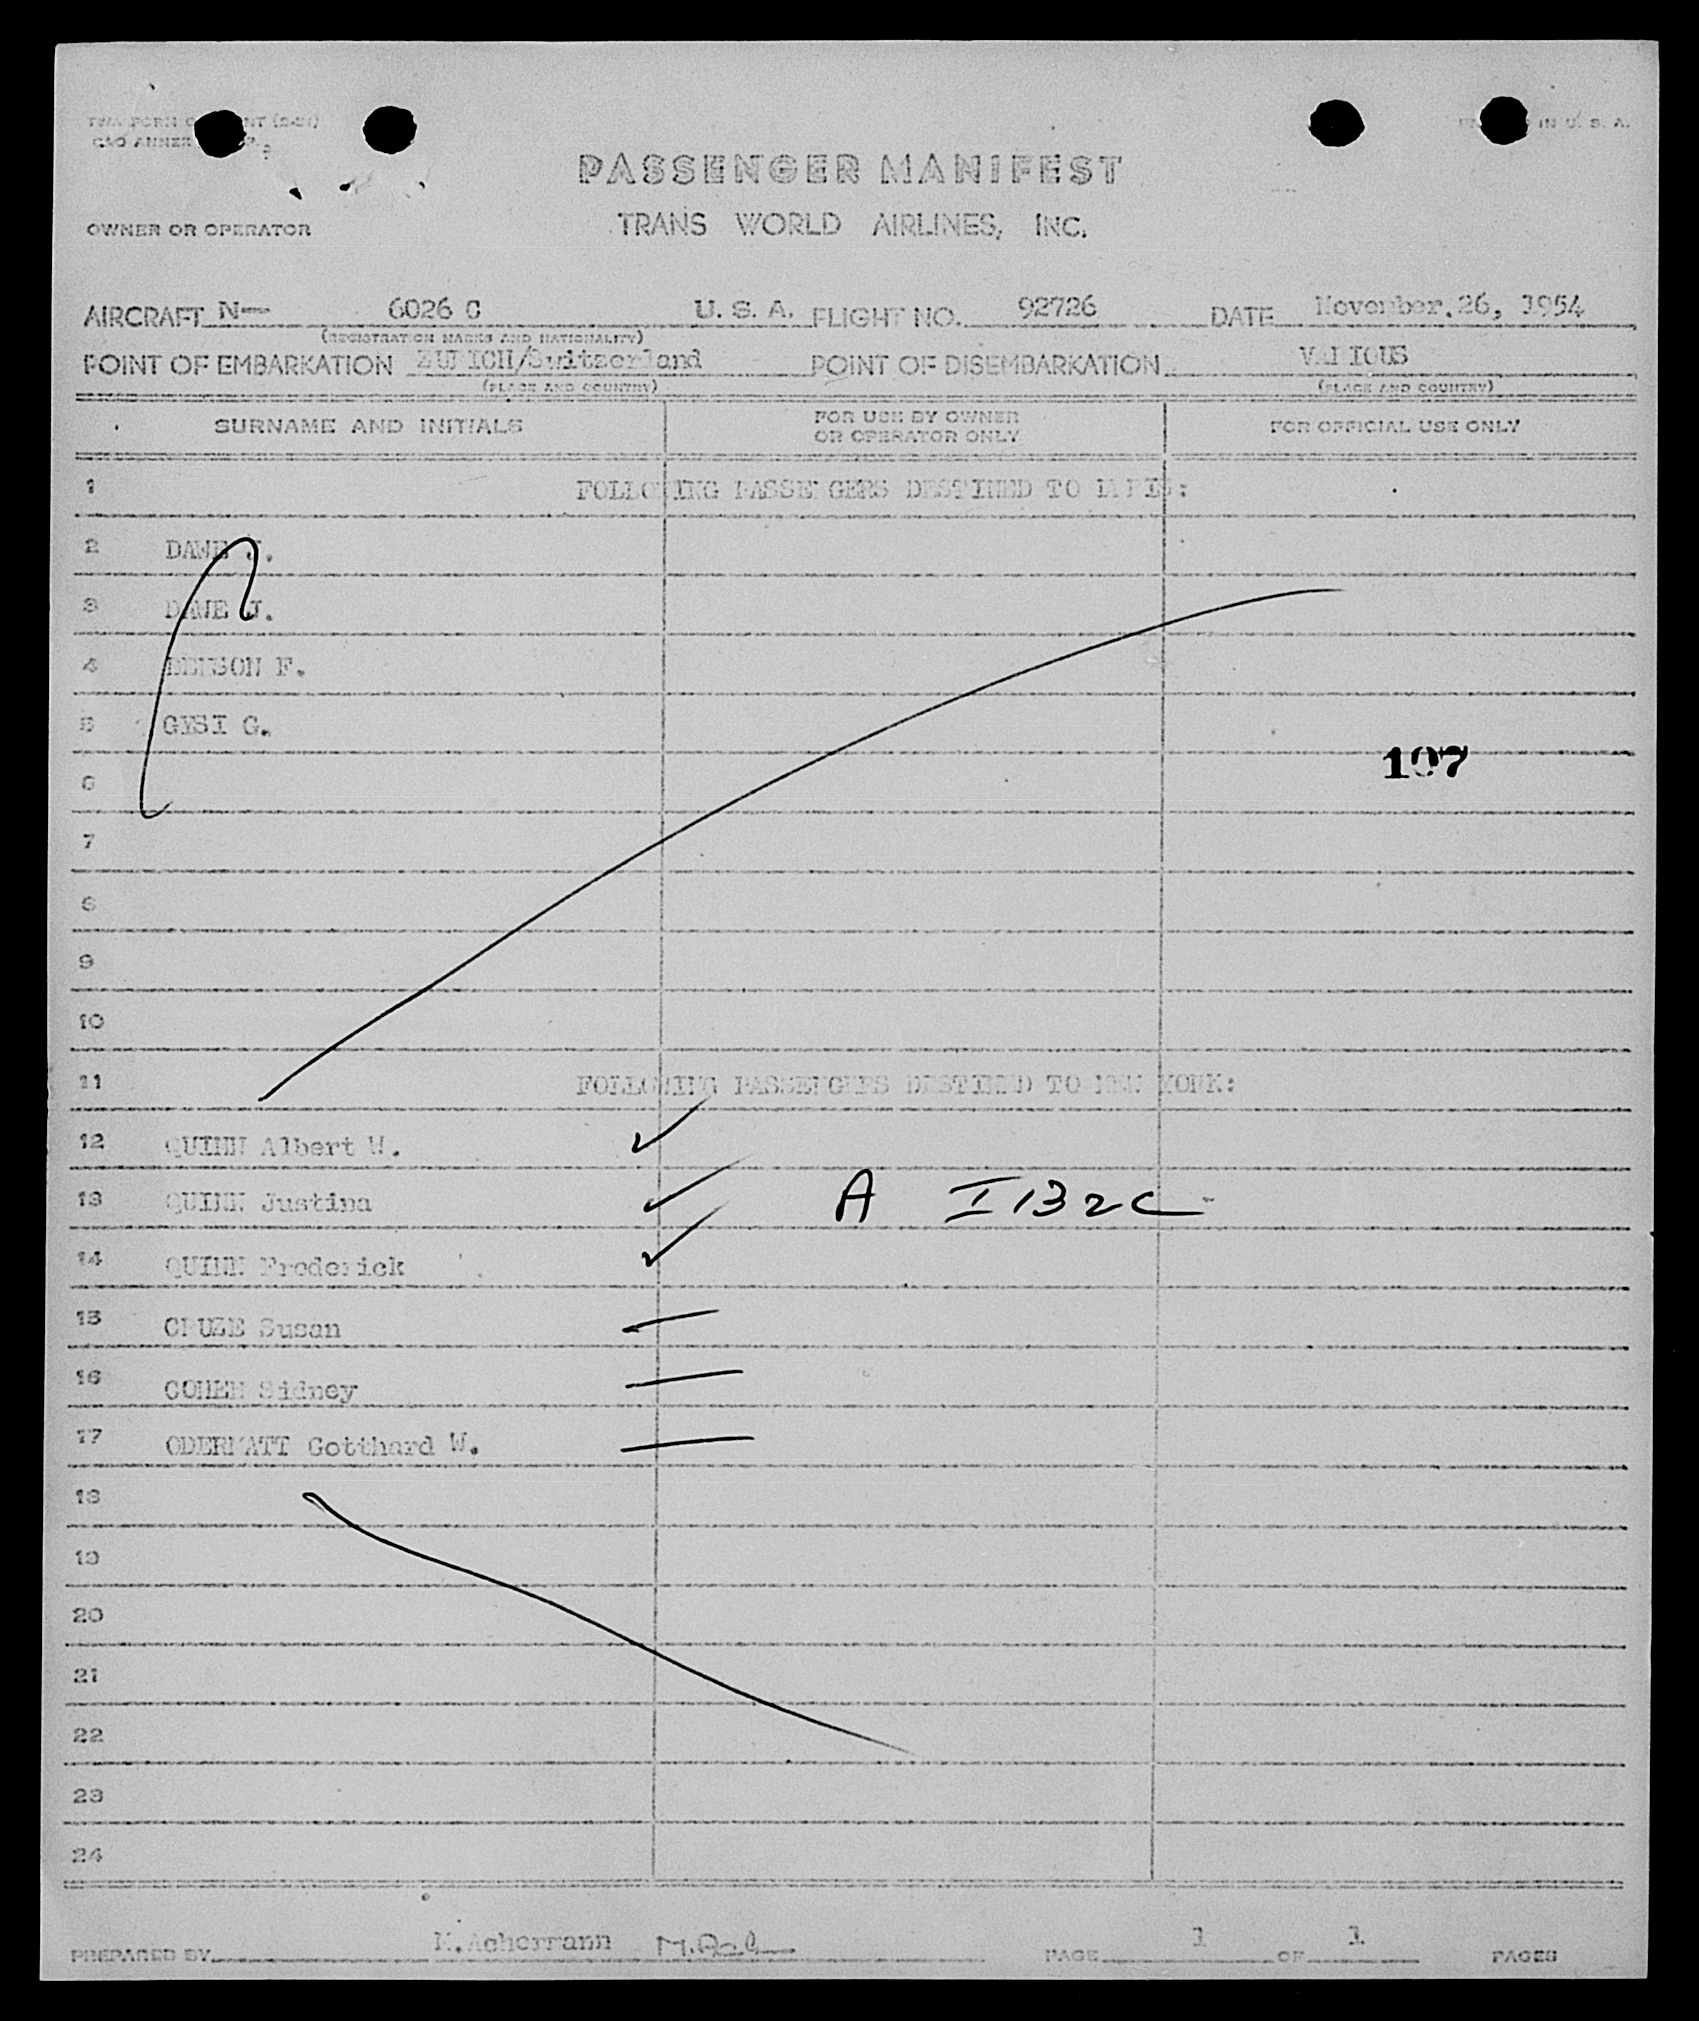 PASSENGER MANIFEST
OWNER OR OPERATOR TRANS WORLD AIRLINES, INC.
AIRCRAFT N— 6026 C U. S. A. FLIGHT NO. 92726 DATE November.26, 1954
(REGISTRATION MARKS AND NATIONALITY)
POINT OF EMBARKATION ZURICH/Switzerland POINT OF DISEMBARKATION VARIOUS
(PLACE AND COUNTRY) (PLACE AND COUNTRY)
SURNAME AND INITIALS FOR USE BY OWNER OR OPERATOR ONLY FOR OFFICIAL USE ONLY
1 FOLLOWING PASSENGERS DESTINED TO PARIS:
2 DAWE J.
3 DAWE J.
4 F.
5 GESI G.
107
6
7
8
9
10
11 FOLLOWING PASSENGERS DESTINED TO NEW YORK:
12 QUINN Albert W.
13 QUINN Justina A I 132C
14 QUINN Frederick
15 Susan
16 COHEN Sidney
17 ODERMATT Gotthard W.
18
19
20
21
22
23
24
PREPARED BY M.Achermann PAGE 1 OF 1 PAGES